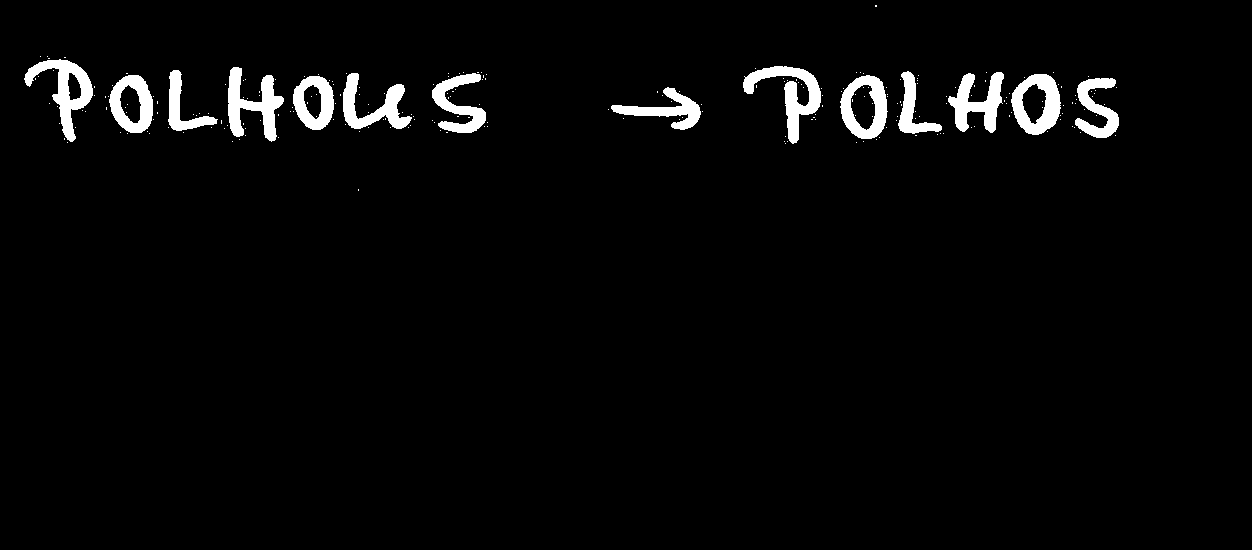 POLHOUS → POLHOS